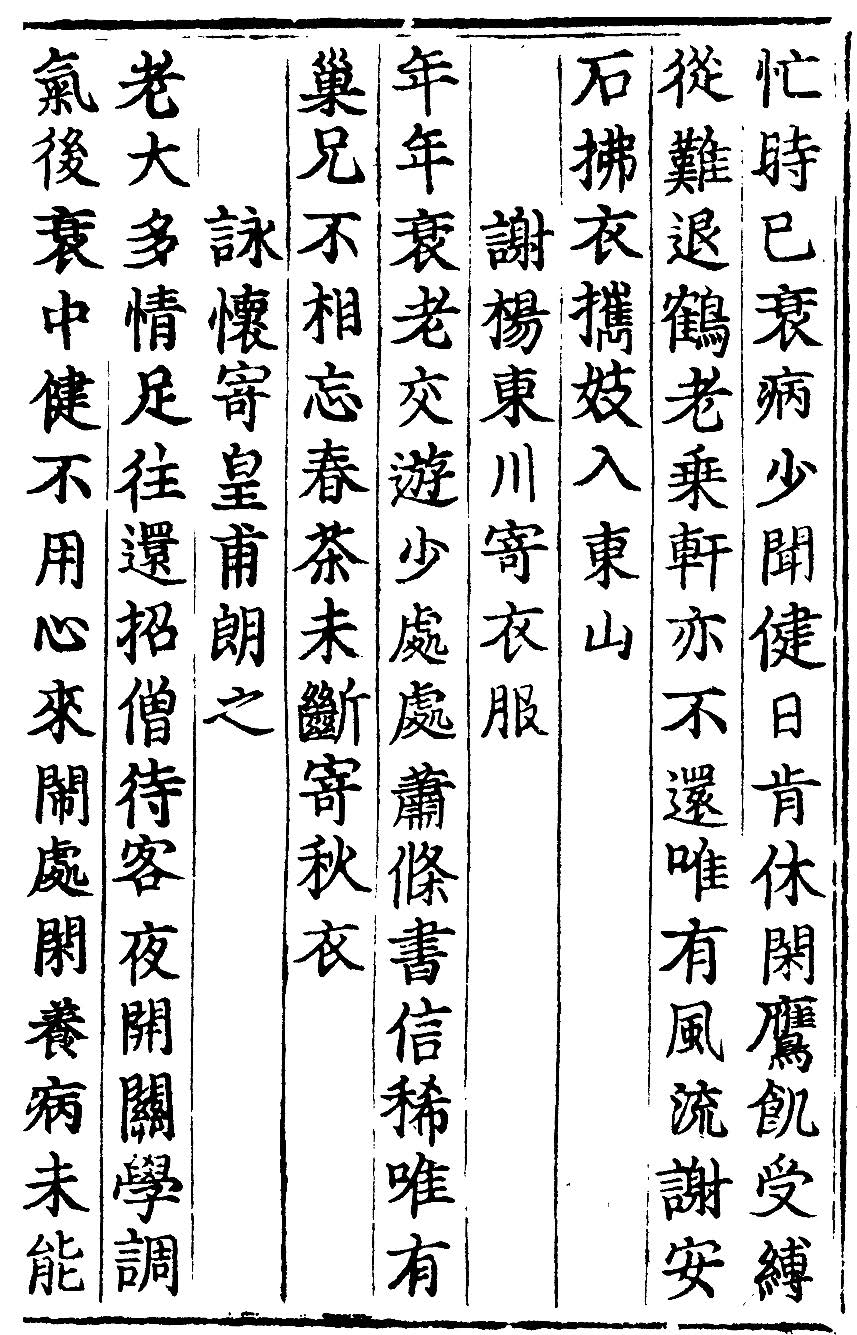 忙時已衰病少聞健日肯休閑鷹飢受縛
從難退鶴老乗軒亦不還唯有風流謝安
石拂衣攜妓入東山
謝楊東川寄衣服
年年衰老交遊少處處蕭條書信稀唯有
巢兄不相忘春茶未斷寄秋衣
詠懷寄皇甫朗之
老大多情足往還招僧待客夜開關學調
氣後衰中健不用心來鬧處閑養病未能